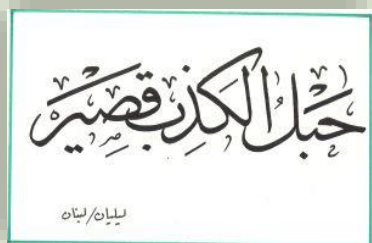 حَبْلُ الكَذِبِ قَصِيرٌ
ليليان/لبنان